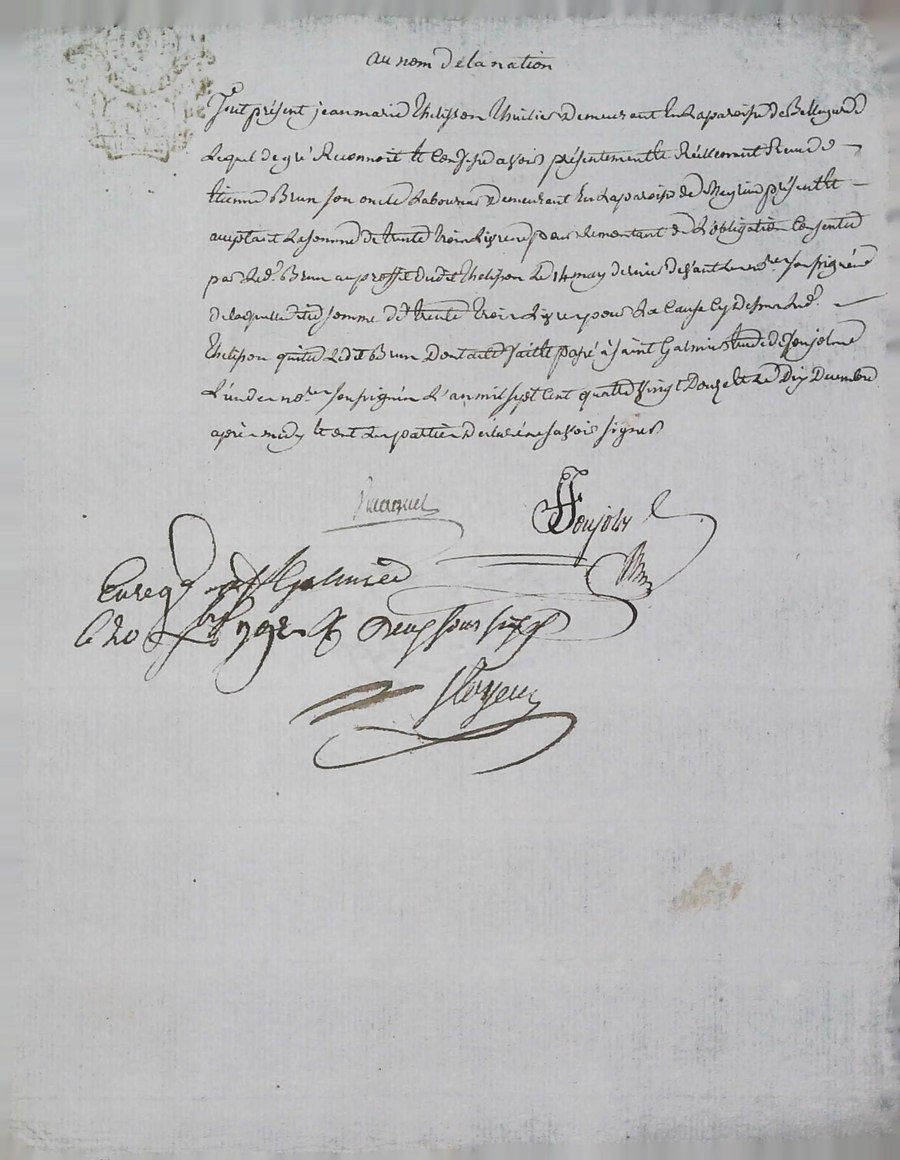 au nom de la nation
fut présent jean marie thelisson thuilier demeurant en la paroisse de Bellegarde
Lequel de gré Reconnoit et Confesse avoir présentement et Réellement Receu de
Etienne Brun son oncle Laboureur demeurant en la paroisse de Meyrin présent et
acceptant La somme de trente trois Livres pour le montant de L'obligation Consentie
par Led. Brun au proffit dudit thelisson Le 14 may dernier devant Les no.res soussignés
de laquelle dite somme de trente trois Livres pour La Cause Cy dessus Led.
thelisson quitte Ledit Brun dont acte fait et passé à Saint Galmier Etude de Soujolin
L'un des no.res soussignés L'an mil sept Cent quatre Vingt Douze et Le Dix Décembre
après midy et ont Les parties déclaré ne savoir signer
Enreg. à St Galmier
le 20 Xbre 1792 R deux sous six